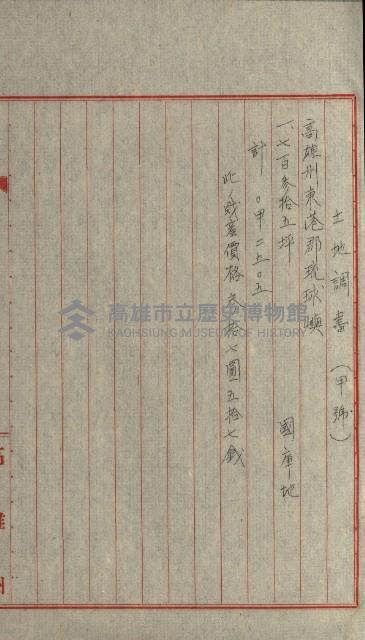 土地調書（甲號）
高雄州東港郡琉球嶼
一、七百參拾五坪　國庫地
計　〇甲二五〇五
此ノ財產價格 參拾七圓五拾七錢
高雄州
高雄市立歷史博物館
KAOHSIUNG MUSEUM OF HISTORY